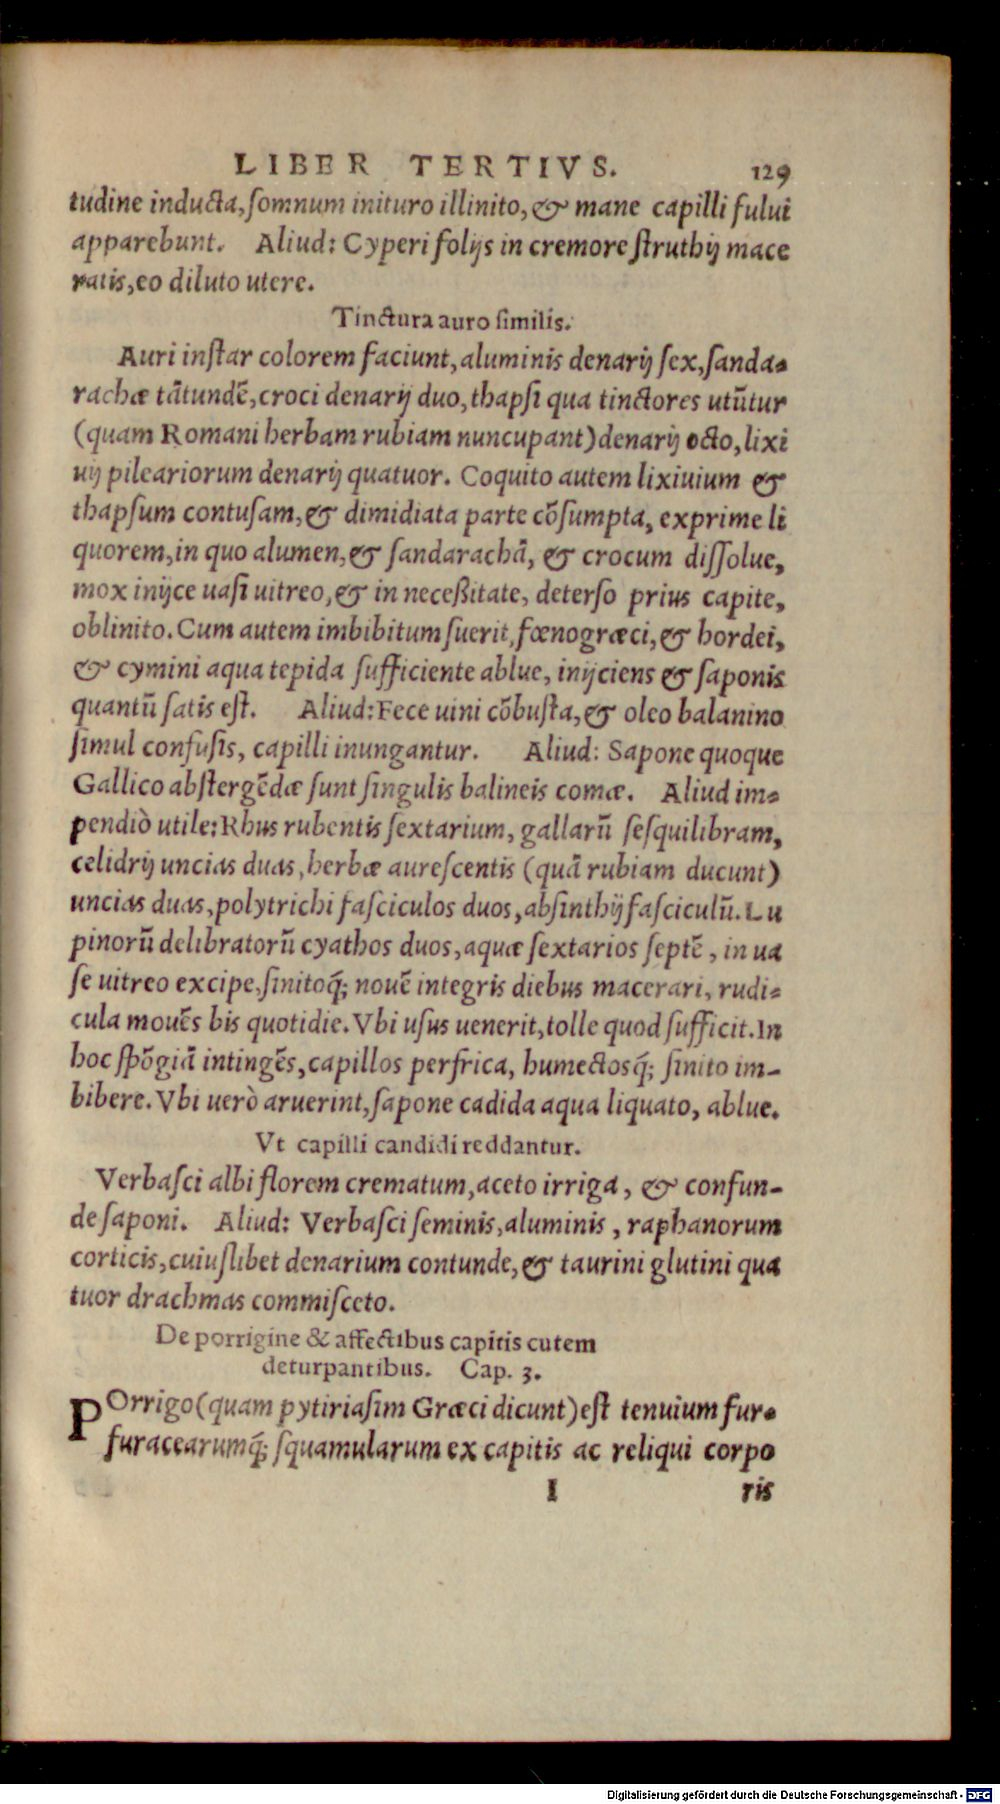 LIBER TERTIVS. 129
tudine inducta, ſomnum inituro illinito, & mane capilli fului
apparebunt. Aliud: Cyperi folijs in cremore ſtruthij mace
ratis, eo diluto utere.
Tinctura auro ſimilis.
Auri inſtar colorem faciunt, aluminis denarij ſex, ſanda-
rachæ tātundē, croci denarij duo, thapſi qua tinctores utūtur
(quam Romani herbam rubiam nuncupant) denarij octo, lixi
uij pileariorum denarij quatuor. Coquito autem lixiuium &
thapſum contuſam, & dimidiata parte cōſumpta, exprime li
quorem, in quo alumen, & ſandarachā, & crocum diſſolue,
mox inijce uaſi uitreo, & in neceßitate, deterſo prius capite,
oblinito. Cum autem imbibitum fuerit, fœnogræci, & hordei,
& cymini aqua tepida ſufficiente ablue, inijciens & ſaponis
quantū ſatis eſt. Aliud: Fece uini cōbuſta, & oleo balanino
ſimul confuſis, capilli inungantur. Aliud: Sapone quoque
Gallico abſtergēdæ ſunt ſingulis balineis comæ. Aliud im-
pendiò utile: Rhus rubentis ſextarium, gallarū ſeſquilibram,
celidrij uncias duas, herbæ aureſcentis (quā rubiam ducunt)
uncias duas, polytrichi faſciculos duos, abſinthij faſciculū. Lu
pinorū delibratorū cyathos duos, aquæ ſextarios ſeptē, in ua
ſe uitreo excipe, ſinitoq́; nouē integris diebus macerari, rudi-
cula mouēs bis quotidie. Vbi uſus uenerit, tolle quod ſufficit. In
hoc ſpōgiā intingēs, capillos perfrica, humectosq́; ſinito im-
bibere. Vbi uerò aruerint, ſapone cadida aqua liquato, ablue.
Vt capilli candidi reddantur.
Verbaſci albi florem crematum, aceto irriga, & confun-
de ſaponi. Aliud: Verbaſci ſeminis, aluminis, raphanorum
corticis, cuiuſlibet denarium contunde, & taurini glutini qua
tuor drachmas commiſceto.
De porrigine & affectibus capitis cutem
deturpantibus. Cap. 3.
POrrigo (quam pytiriaſim Græci dicunt) eſt tenuium fur-
furacearumq́; ſquamularum ex capitis ac reliqui corpo
I ris
Digitalisierung gefördert durch die Deutsche Forschungsgemeinschaft - DFG